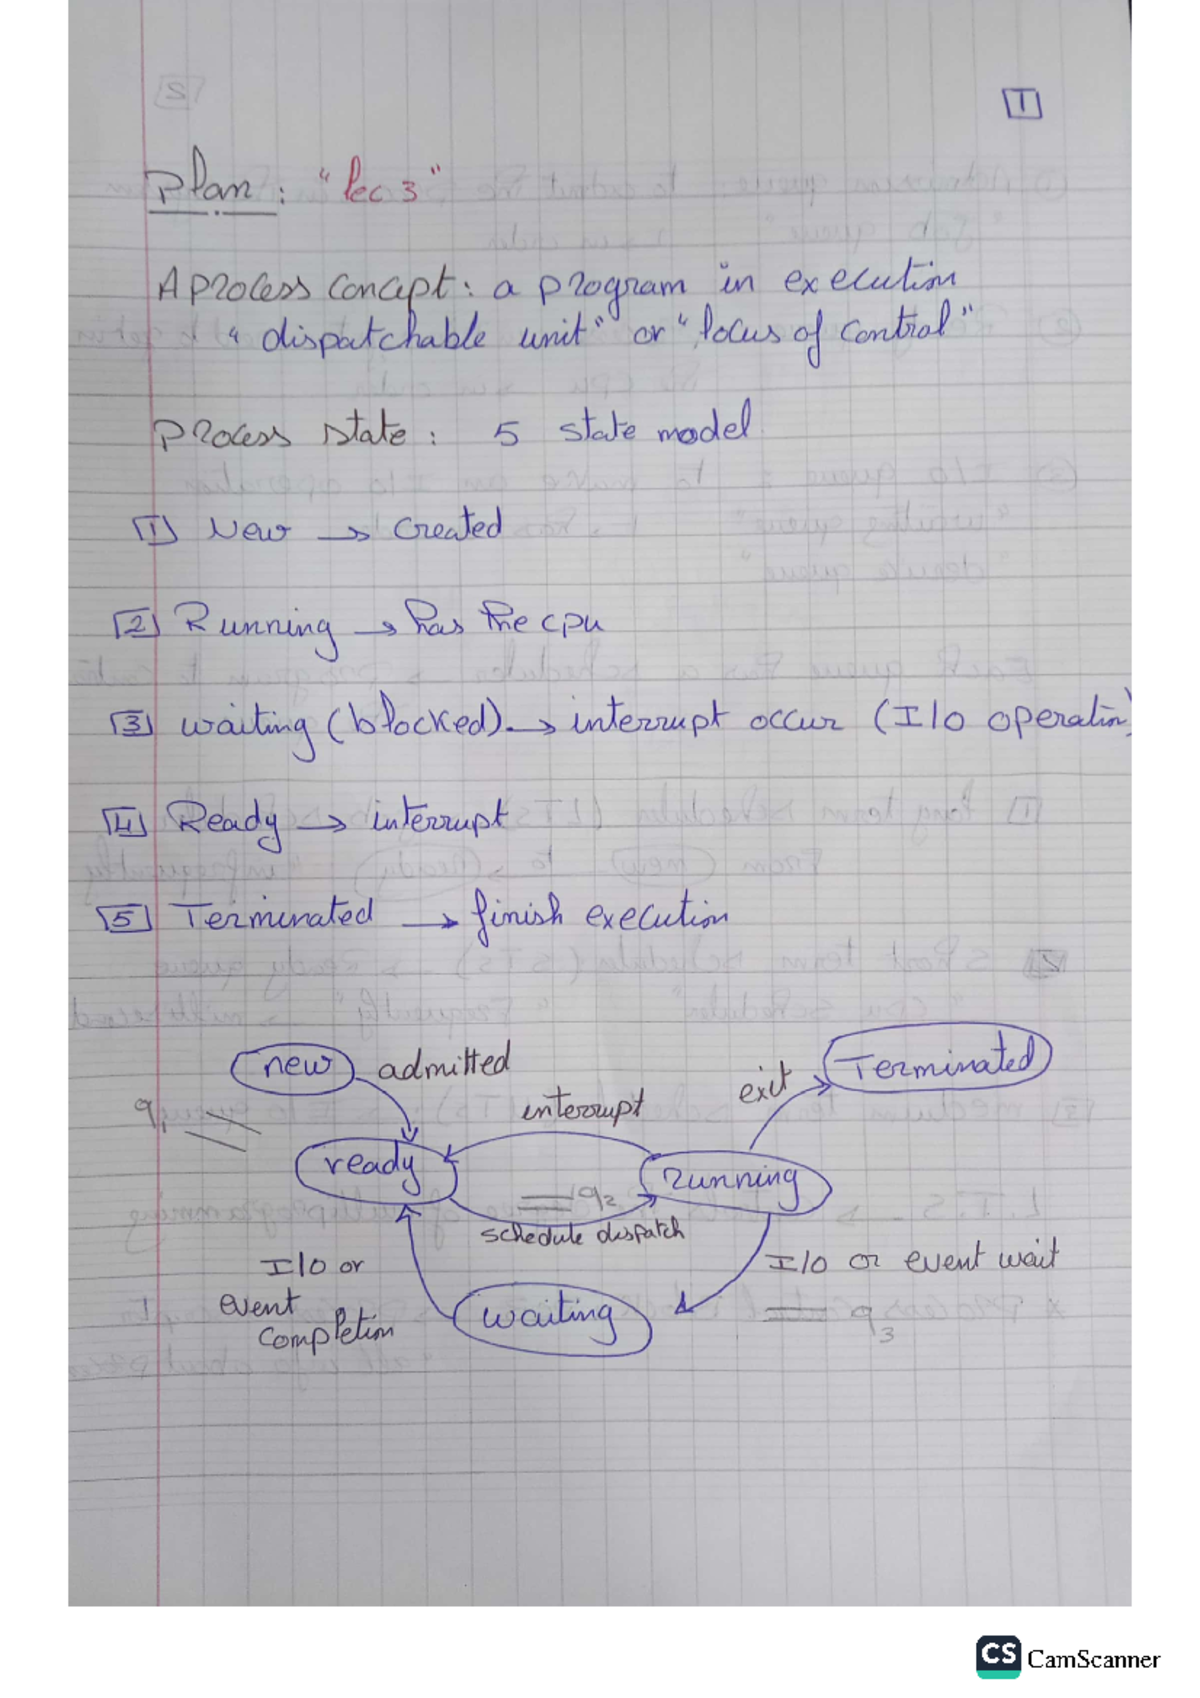 1
Plan : "lec 3"
A process concept : a program in execution
"dispatchable unit" or "locus of control"
Process state : 5 state model
1 New → created
2 Running → has the cpu
3 waiting (blocked) → interrupt occur (I/O operation)
4 Ready → interrupt
5 Terminated → finish execution
new admitted
Terminated
exit
interrupt
q1
ready
running
q2
schedule dispatch
I/O or
event
completion
I/O or event wait
waiting
q3
CS CamScanner